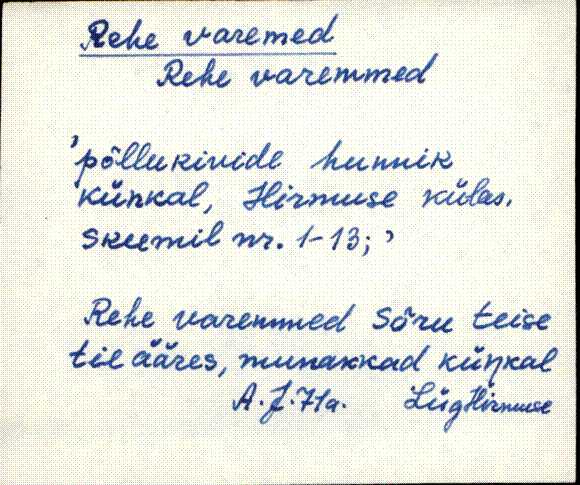 Rehe varemed
Rehe varemmed
'põllukivide hunnik
künkal, Hirmuse külas.
Skeemil nr. 1-13;'
Rehe varemmed Sõru teise
tie ääres, munakkad küŋkal
A.J.71a. LügHirmuse